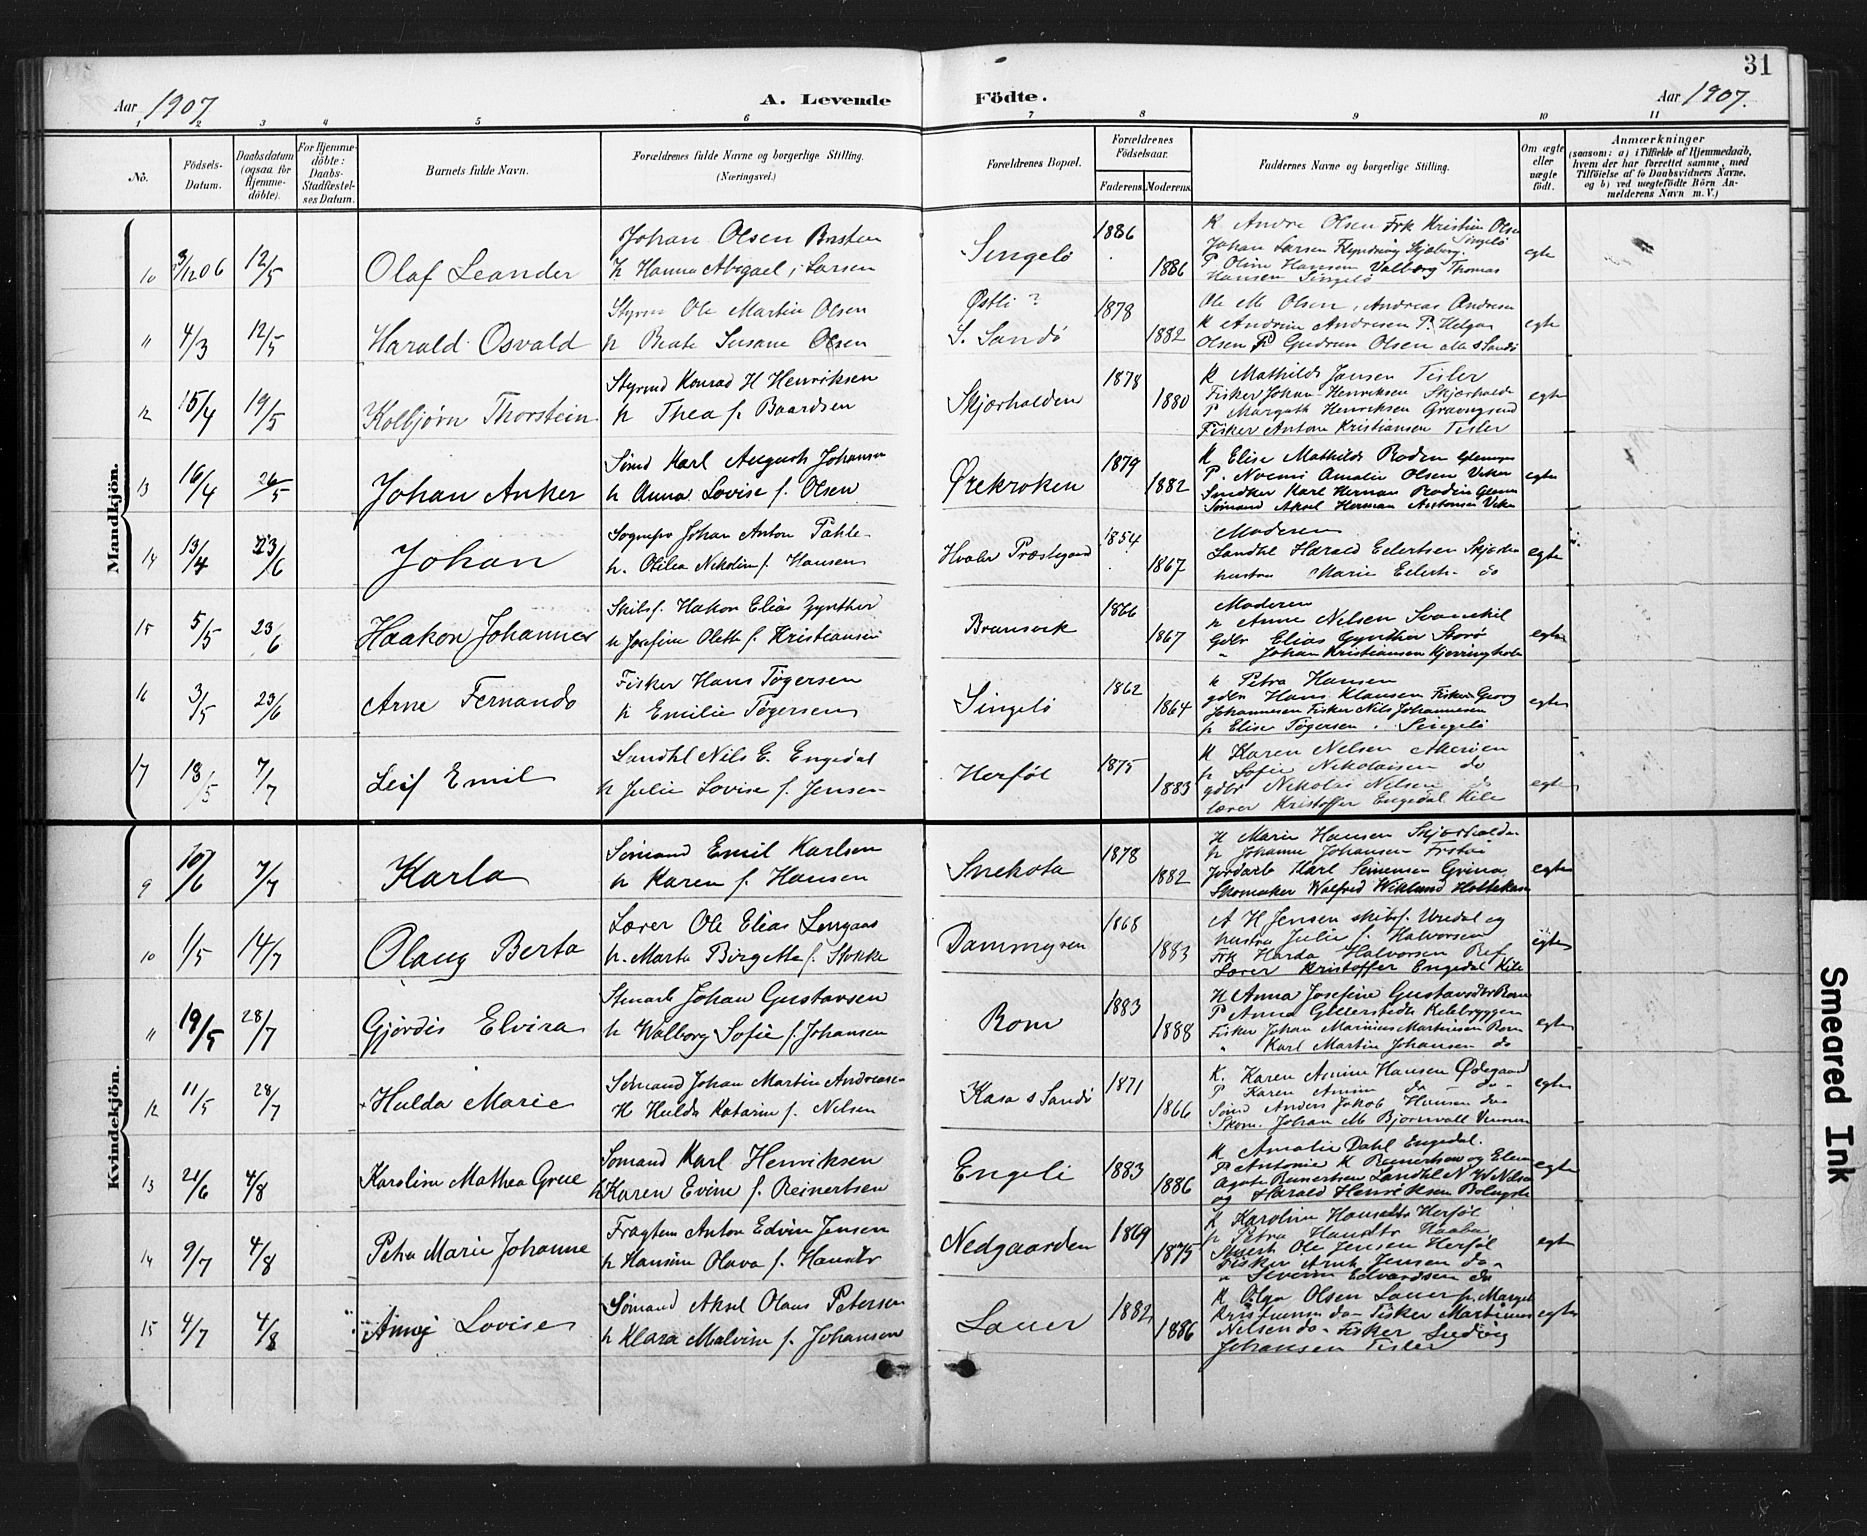 31
Aar 1907
A. Levende Födte.
Aar 1907.
1 2 3 4 5 6 7 8 9 10 11
No.
Födsels-Datum.
Daabsdatum (ogsaa for Hjemme-döbte).
For Hjemme-döbte: Daabs-Stadfæstel-ses Datum.
Barnets fulde Navn.
Forældrenes fulde Navne og borgerlige Stilling.
(Næringsvei.)
Forældrenes Bopæl.
Forældrenes Födselsaar.
Faderens. Moderens.
Faddernes Navne og borgerlige Stilling.
Om ægte eller uægte födt.
Anmærkninger
(saasom: a) i Tilfælde af Hjemmedaab,
hvem der har forrettet samme, med
Tilföielse af to Daabsvidners Navne,
og b) ved uægtefödte Börn An-
melderens Navn m. V.)
Mandkjön.
10 3/12 06 12/5 Olaf Leander
Johan Olsen Basten
h Hanna Abegael f Larsen
Singelö 1886 1886
K Andre Olsen Frk Kristin Olsen
Singelö
Johan Larsen
P Oline Hansen Valborg Thomas
Hansen Singelö
egte
11 4/3 12/5 Harald Osvald
Styrm Ole Martin Olsen
h Beate Susane Olsen
Østli ?
S. Sandö 1878 1882
Ole M Olsen, Andreas Andresen
K Andrine Andresen P. Helga
Olsen P Gudrun Olsen alle S Sandö
egte
12 15/4 19/5 Kolbjørn Thorstein
Styrmd Konrad H Henriksen
h Thea f. Baardsen
Skjærhalden 1878 1880
K Mathilde Jensen Tisler
Fisker Johan Henriksen Skjærhalde
P Margoth Henriksen
Fisker Anton Kristiansen Tisler
egte
13 16/4 26/5 Johan Anker
Sömd Karl August Johansen
h Anna Lovise f. Olsen
Ørekroken 1879 1882
K Elise Mathilde Bodin
P. Noemi Amalie Olsen Viker
Karl Herman Bodin
Sömand Aksel Herman Antonsen Viker
egte
14 13/4 23/6 Johan
Sognepr Johan Anton Pahle
h. Otilia Nikoline f. Hansen
Hvaler Præstegaard 1854 1867
Moderen
Landhl Harald Eilertsen
hustru Marie Eilerts. do
egte
15 5/5 23/6 Haakon Johannes
Skibsf. Hakon Elias Gynther
h Josefine Olette f Kristiansen
Brансвик 1866 1867
Moderen
h Anne Nelsen Svanekil
Gdbr Elias Gynther Storö
" Johan Kristiansen Kjerringholm
egte
16 3/5 23/6 Arne Fernando
Fisker Hans Tøgersen
h Emilie Tøgersen
Singelö 1862 1864
h Petra Hansen
gdbr Hans Klausen Fisker Georg
Johannesen Fisker Nils Johannesen
h Elise Tøgersen. Singelö
egte
17 18/5 7/7 Leif Emil
Landhl Nils E. Engedal
h Julie Lovise f. Jensen
Herføl 1875 1883
K Karen Nelsen Akerøen
h Sofie Nikolaisen do
gdbr Nikolai Nelsen do
lærer Kristoffer Engedal Kile
egte
Kvindekjön.
9 10/6 7/7 Karla
Sömand Emil Karlsen
h Karen f. Hansen
Snekota 1878 1882
H Marie Hansen Skjærhalden
h Johanne Johansen
Jordarb Karl Simensen
Skomaker Walfrid Wiklund
egte
10 1/5 14/7 Olaug Berta
Lærer Ole Elias Longaas
h. Marta Birgette f. Stokke
Dammyren 1868 1883
A H Jensen skibsf. Uredal og
hustru Julie f. Halvorsen
Frk Harda Halvorsen Ref
Lærer Kristoffer Engedal Kile
egte
11 19/5 28/7 Gjørdis Elvira
Stenarb Johan Gustavsen
h Walborg Sofie f. Johansen
Rom 1883 1888
H Anna Josefine Gustavsen Rom
P Anna
Fisker Johan Marinius Martinsen Rom
" Karl Martin Johansen do
egte
12 11/5 28/7 Hulda Marie
Sömand Johan Martin Andreasen
H Hulda Katarine f. Nelsen
Kasa S Sandö 1871 1866
K. Karen Annine Hansen Ødegaard
P Karen Annine do do
Sömd Anders Jakob Hansen do
Skom. Johan M Bjørnvall
egte
13 21/6 4/8 Karoline Mathea Grue
Sömand Karl Henriksen
h Karen Evine f. Reinertsen
Engeli 1883 1886
K Amalie Dahl Engedal.
P Antonie K Reinertsen og Elen
Agate Reinertsen Landhl N W Nilsen
og Harald Henriksen
egte
14 9/7 4/8 Petra Marie Johanne
Fragtem Anton Edvin Jensen
h Hansine Olava f. Hansdtr
Nedgaarden 1869 1875
K Karoline Hansdtr Herføl
h Petra Hansdtr
Ole Jensen Herføl
Fisker Jensen do
" Severin Edvardsen do
egte
15 4/7 4/8 Amy Lovise
Sömand Aksel Olaus Petersen
h Klara Malvine f. Johansen
Lauer 1882 1886
K Olga Olsen Lauer
do Fisker Martinius
Nelsen do Fisker Ludvig
Johansen Tisler
egte
Smeared Ink